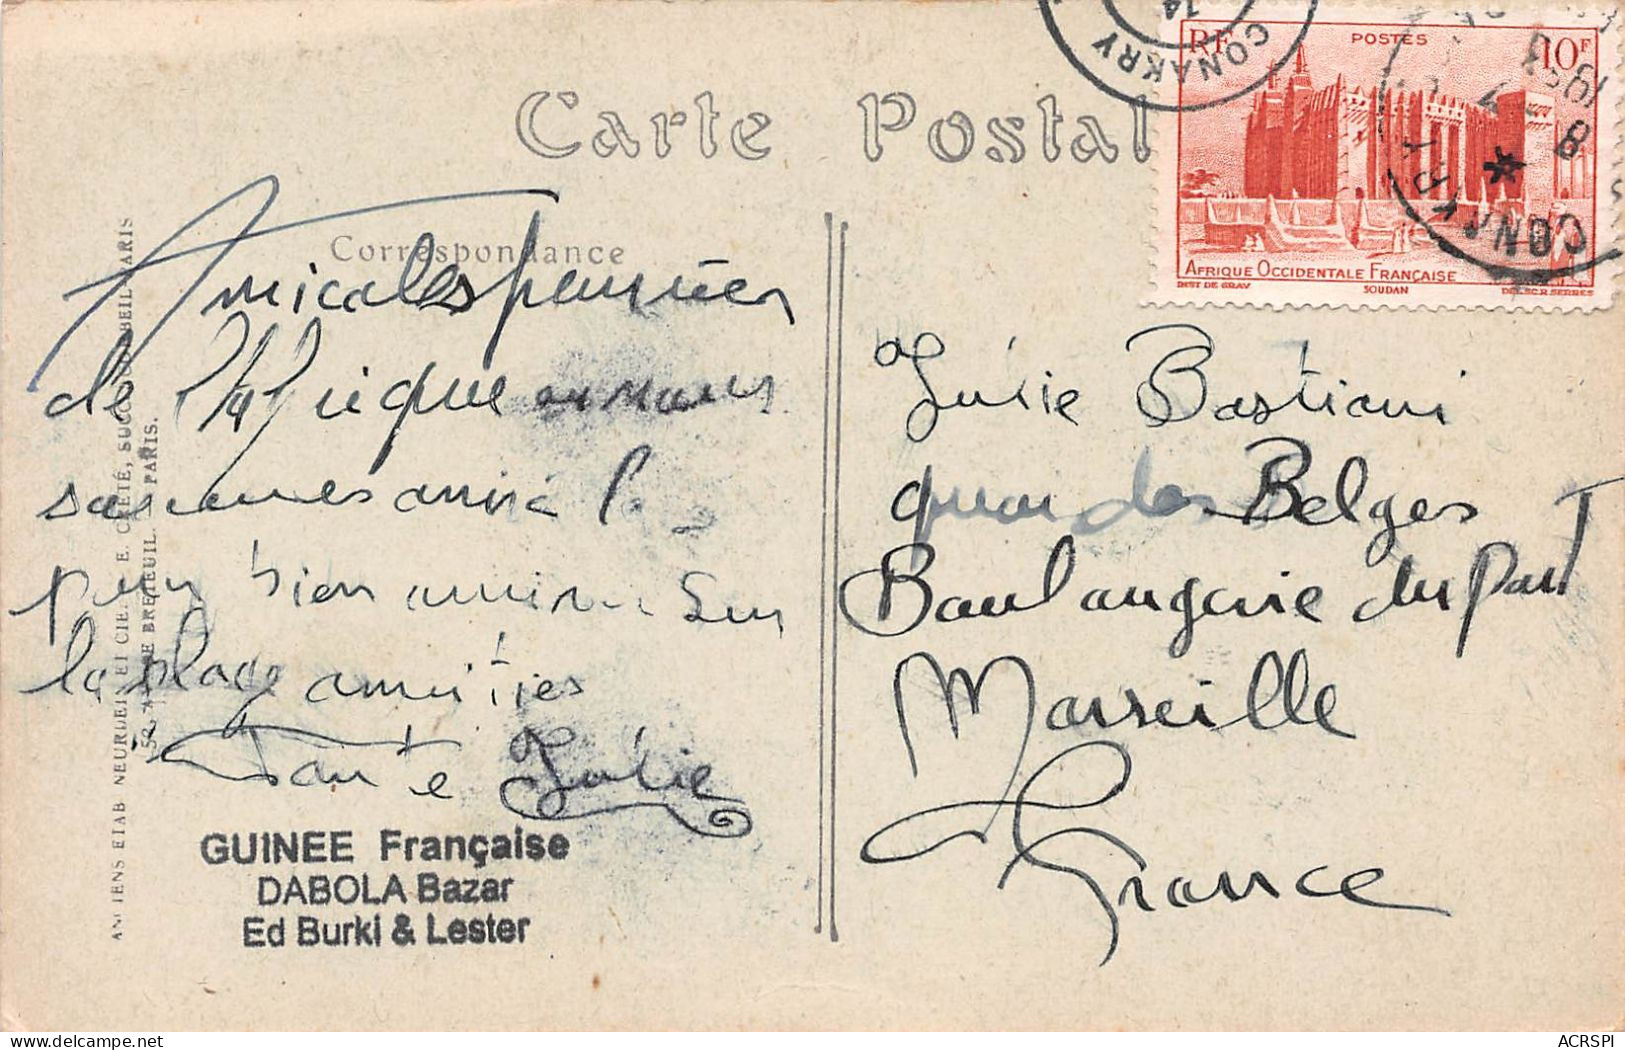 Carte Postale
Correspondance
CONAKRY
14
RF
POSTES
10F
CONAKRY
8
AFRIQUE OCCIDENTALE FRANÇAISE
INST DE GRAV
SOUDAN
DEL. SC. R. SERRES
Amicales pensées
de l'Afrique
sommes arrivé
bien sur
la plage amitiés
Tante Julie
GUINEE Française
DABOLA Bazar
Ed Burki & Lester
Julie Bastiani
quai des Belges
Boulangerie du port
Marseille
France
ANCIENS ETAB NEURDEIN ET CIE. E. CRÉTÉ, SUCC. CORBEIL PARIS
52, AV. DE BRETEUIL. PARIS.
ACRSPI